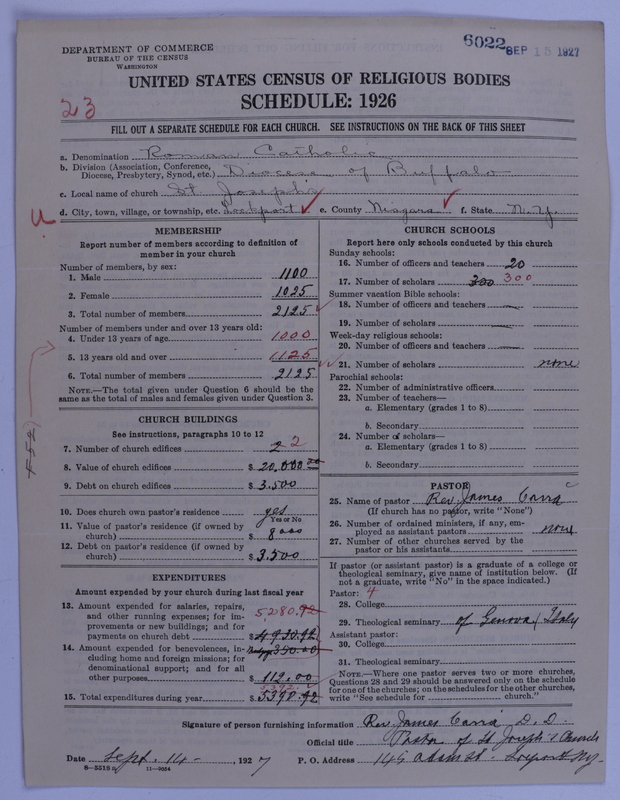 6022 SEP 15 1927
DEPARTMENT OF COMMERCE
BUREAU OF THE CENSUS
WASHINGTON
UNITED STATES CENSUS OF RELIGIOUS BODIES
SCHEDULE: 1926
23
FILL OUT A SEPARATE SCHEDULE FOR EACH CHURCH. SEE INSTRUCTIONS ON THE BACK OF THIS SHEET
a. Denomination Roman Catholic
b. Division (Association, Conference, Diocese, Presbytery, Synod, etc.) Diocese of Buffalo
c. Local name of church St. Joseph's
d. City, town, village, or township, etc. Lockport e. County Niagara f. State N.Y.
MEMBERSHIP
Report number of members according to definition of
member in your church
Number of members, by sex:
1. Male 1100
2. Female 1025
3. Total number of members 2125
Number of members under and over 13 years old:
4. Under 13 years of age 1000
5. 13 years old and over 1125
6. Total number of members 2125
NOTE.—The total given under Question 6 should be the
same as the total of males and females given under Question 3.
CHURCH BUILDINGS
See instructions, paragraphs 10 to 12
7. Number of church edifices 2 2
8. Value of church edifices $ 20,000.00
9. Debt on church edifices $ 3.500
10. Does church own pastor's residence? yes
Yes or No
11. Value of pastor's residence (if owned by
church) $ 8000
12. Debt on pastor's residence (if owned by
church) $ 3.500
EXPENDITURES
Amount expended by your church during last fiscal year
13. Amount expended for salaries, repairs,
and other running expenses; for im-
provements or new buildings; and for
payments on church debt 5280.92 $ 4930.92
14. Amount expended for benevolences, in-
cluding home and foreign missions; for
denominational support; and for all
other purposes 350.00 $ 112.00
15. Total expenditures during year $ 5392.92
CHURCH SCHOOLS
Report here only schools conducted by this church
Sunday schools:
16. Number of officers and teachers 20
17. Number of scholars 300 300
Summer vacation Bible schools:
18. Number of officers and teachers
19. Number of scholars
Week-day religious schools:
20. Number of officers and teachers
21. Number of scholars none
Parochial schools:
22. Number of administrative officers
23. Number of teachers—
a. Elementary (grades 1 to 8)
b. Secondary
24. Number of scholars—
a. Elementary (grades 1 to 8)
b. Secondary
PASTOR
25. Name of pastor Rev. James Carra
(If church has no pastor, write "None")
26. Number of ordained ministers, if any, em-
ployed as assistant pastors none
27. Number of other churches served by the
pastor or his assistants
If pastor (or assistant pastor) is a graduate of a college or
theological seminary, give name of institution below. (If
not a graduate, write "No" in the space indicated.)
Pastor: 4
28. College
29. Theological seminary of Genova, Italy
Assistant pastor:
30. College
31. Theological seminary
NOTE.—Where one pastor serves two or more churches,
Questions 28 and 29 should be answered only on the schedule
for one of the churches; on the schedules for the other churches,
write "See schedule for church."
Signature of person furnishing information Rev. James Carra D.D.
Official title Pastor of St Joseph's Church
Date Sept. 14 - 1927 P. O. Address St. Lockport N.Y.
8—5513 11—9554